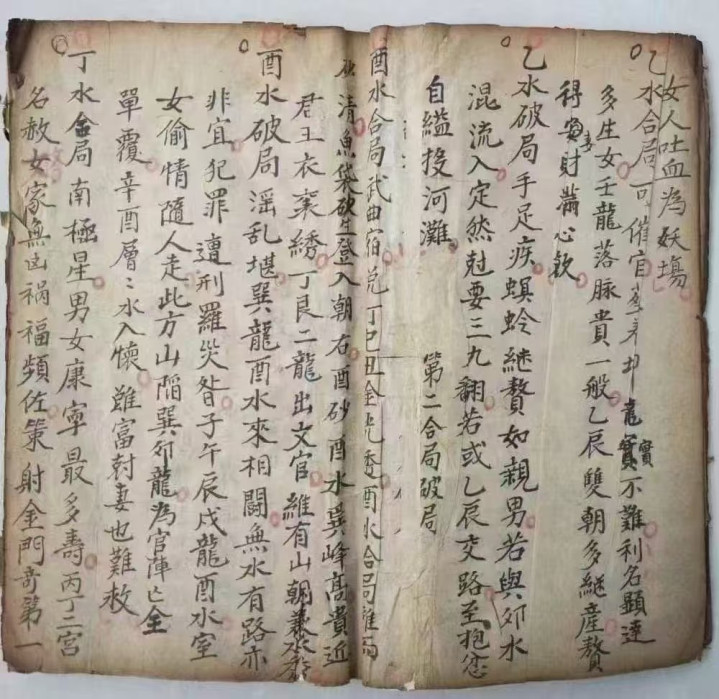 女人吐血為妖塲
乙水合局可催官 龍實實不難利名顯達
多生女壬龍落脉貴一般乙辰雙朝多継産贅
得妻財滿心欤
乙水破局手足疾螟蛉継贅如親男若與夘水
混流入定然尅妻三九翻若或乙辰交路至抱恋
自縊投河灘 第二合局破局
酉水合局武曲宿兑丁巳丑金 酉水合局
清魚袋 登入朝右酉砂酉水巽峰髙貴近
君王衣衮綉丁艮二龍出文官維有山朝兼
酉水破局滛乱堪巽龍酉水來相闘無水有路亦
非宜犯罪遭刑羅災眚子午辰戌龍酉水室
女偷情隨人走此方山陷巽夘龍為官陣亡全
單覆辛酉層〻水入懷雖富尅妻也難救
丁水合局南極星男女康寧最多壽丙丁二宮
名赦女家無凶禍福頻佐策射金門竒第一